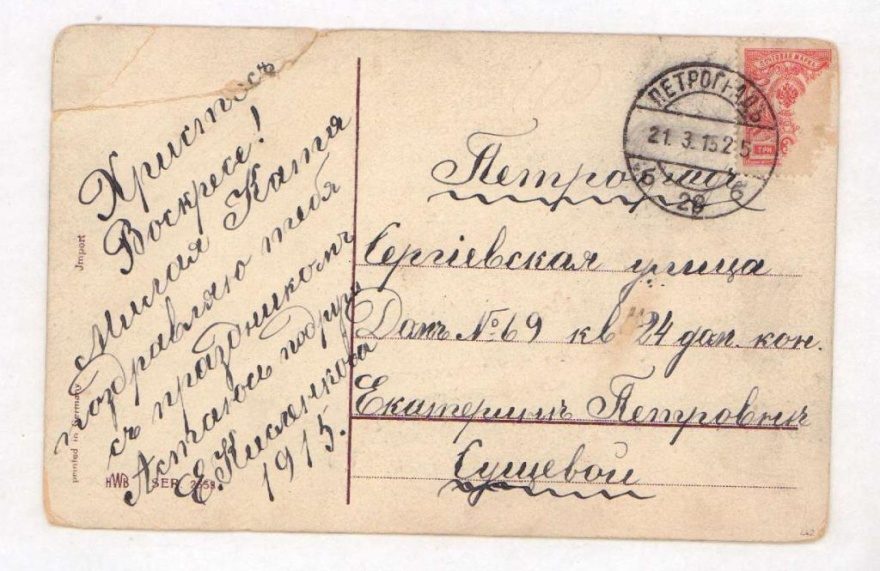 Христосъ
Воскресе!
Милая Катя
поздравляю тебя
съ праздникомъ
Астаюсь подруга
Е. Кисленкова
1915.
Jmport
printed in Germany
HWB SER
ПОЧТОВАЯ МАРКА
ТРИ
ПЕТРОГРАДЪ
21. 3. 15 2 5
28
Петроградъ
Сергіевская улица
Домъ № 69 кв 24 дап. кон.
Екатеринѣ Петровнѣ
Сущевой